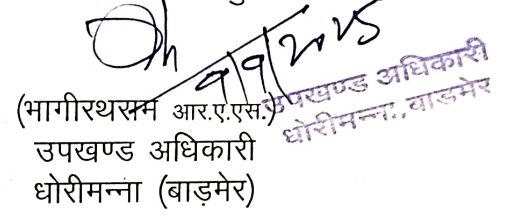 9/9/2025
(भागीरथराम आर.ए.एस.)
उपखण्ड अधिकारी
धोरीमन्ना (बाड़मेर)
उपखण्ड अधिकारी
धोरीमन्ना, बाडमेर